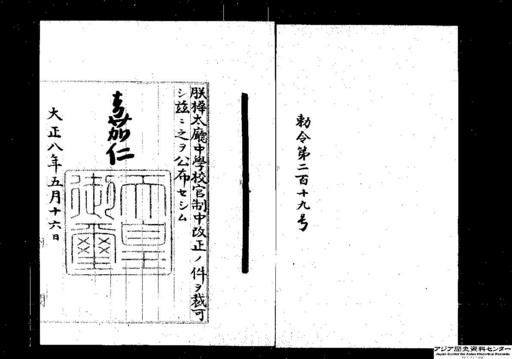 朕樺太廳中學校官制中改正ノ件ヲ裁可
シ茲ニ之ヲ公布セシム
嘉仁
天皇
御璽
大正八年五月十六日
勅令第二百十九号
アジア歴史資料センター
Japan Center for Asian Historical Records